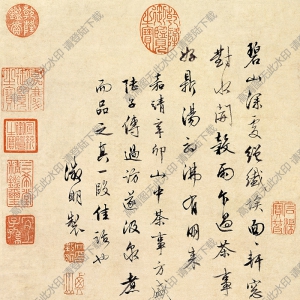 碧山深處絕纖埃面々軒窗
對水開穀雨乍過茶事
好鼎湯初沸有朋來
嘉靖辛卯山中茶事方盛
陸子傅過訪遂汲泉煮
而品之真一段佳話也
徵明製